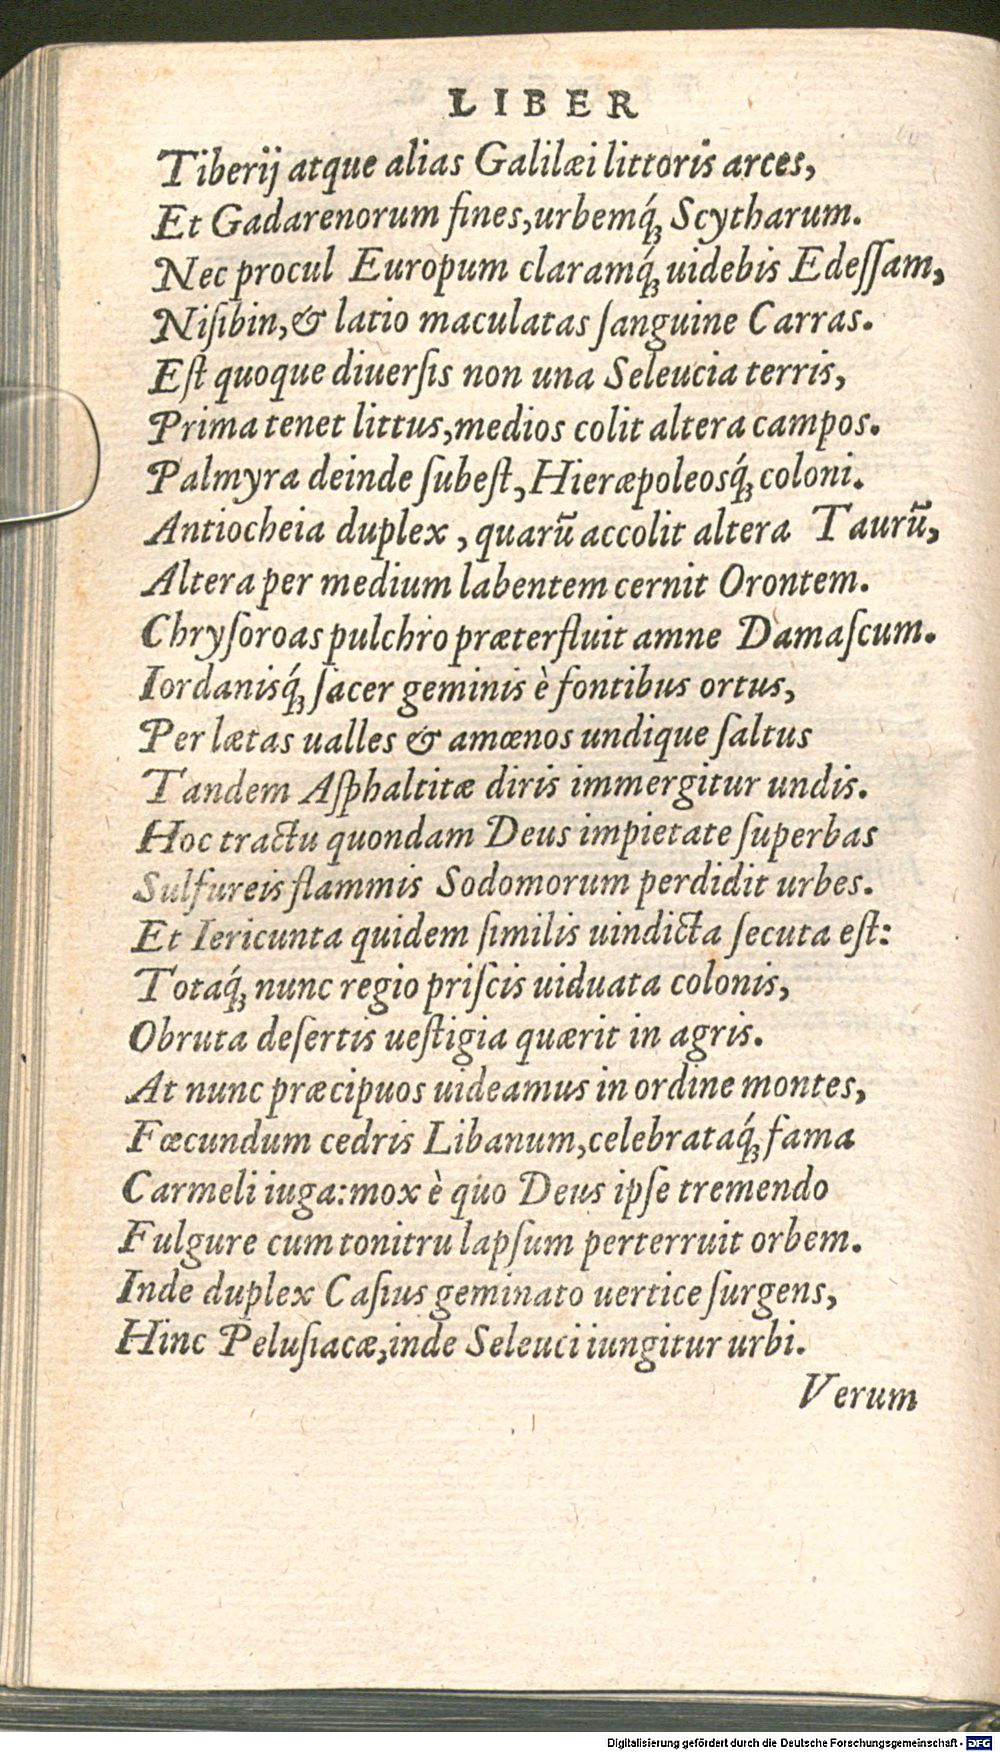 LIBER
Tiberij atque alias Galilæi littoris arces,
Et Gadarenorum fines, urbemq́ꝫ Scytharum.
Nec procul Europum claramq́ꝫ uidebis Edeſſam,
Niſibin, & latio maculatas ſanguine Carras.
Eſt quoque diuerſis non una Seleucia terris,
Prima tenet littus, medios colit altera campos.
Palmyra deinde ſubeſt, Hieræpoleosq́ꝫ coloni.
Antiocheia duplex, quarū accolit altera Taurū,
Altera per medium labentem cernit Orontem.
Chryſoroas pulchro præterfluit amne Damaſcum.
Iordanisq́ꝫ ſacer geminis è fontibus ortus,
Per lætas ualles & amœnos undique ſaltus
Tandem Aſphaltitæ diris immergitur undis.
Hoc tractu quondam Deus impietate ſuperbas
Sulfureis flammis Sodomorum perdidit urbes.
Et Iericunta quidem ſimilis uindicta ſecuta eſt:
Totaq́ꝫ nunc regio priſcis uiduata colonis,
Obruta deſertis ueſtigia quærit in agris.
At nunc præcipuos uideamus in ordine montes,
Fœcundum cedris Libanum, celebrataq́ꝫ fama
Carmeli iuga: mox è quo Deus ipſe tremendo
Fulgure cum tonitru lapſum perterruit orbem.
Inde duplex Caſius geminato uertice ſurgens,
Hinc Peluſiacæ, inde Seleuci iungitur urbi.
Verum
Digitalisierung gefördert durch die Deutsche Forschungsgemeinschaft - DFG